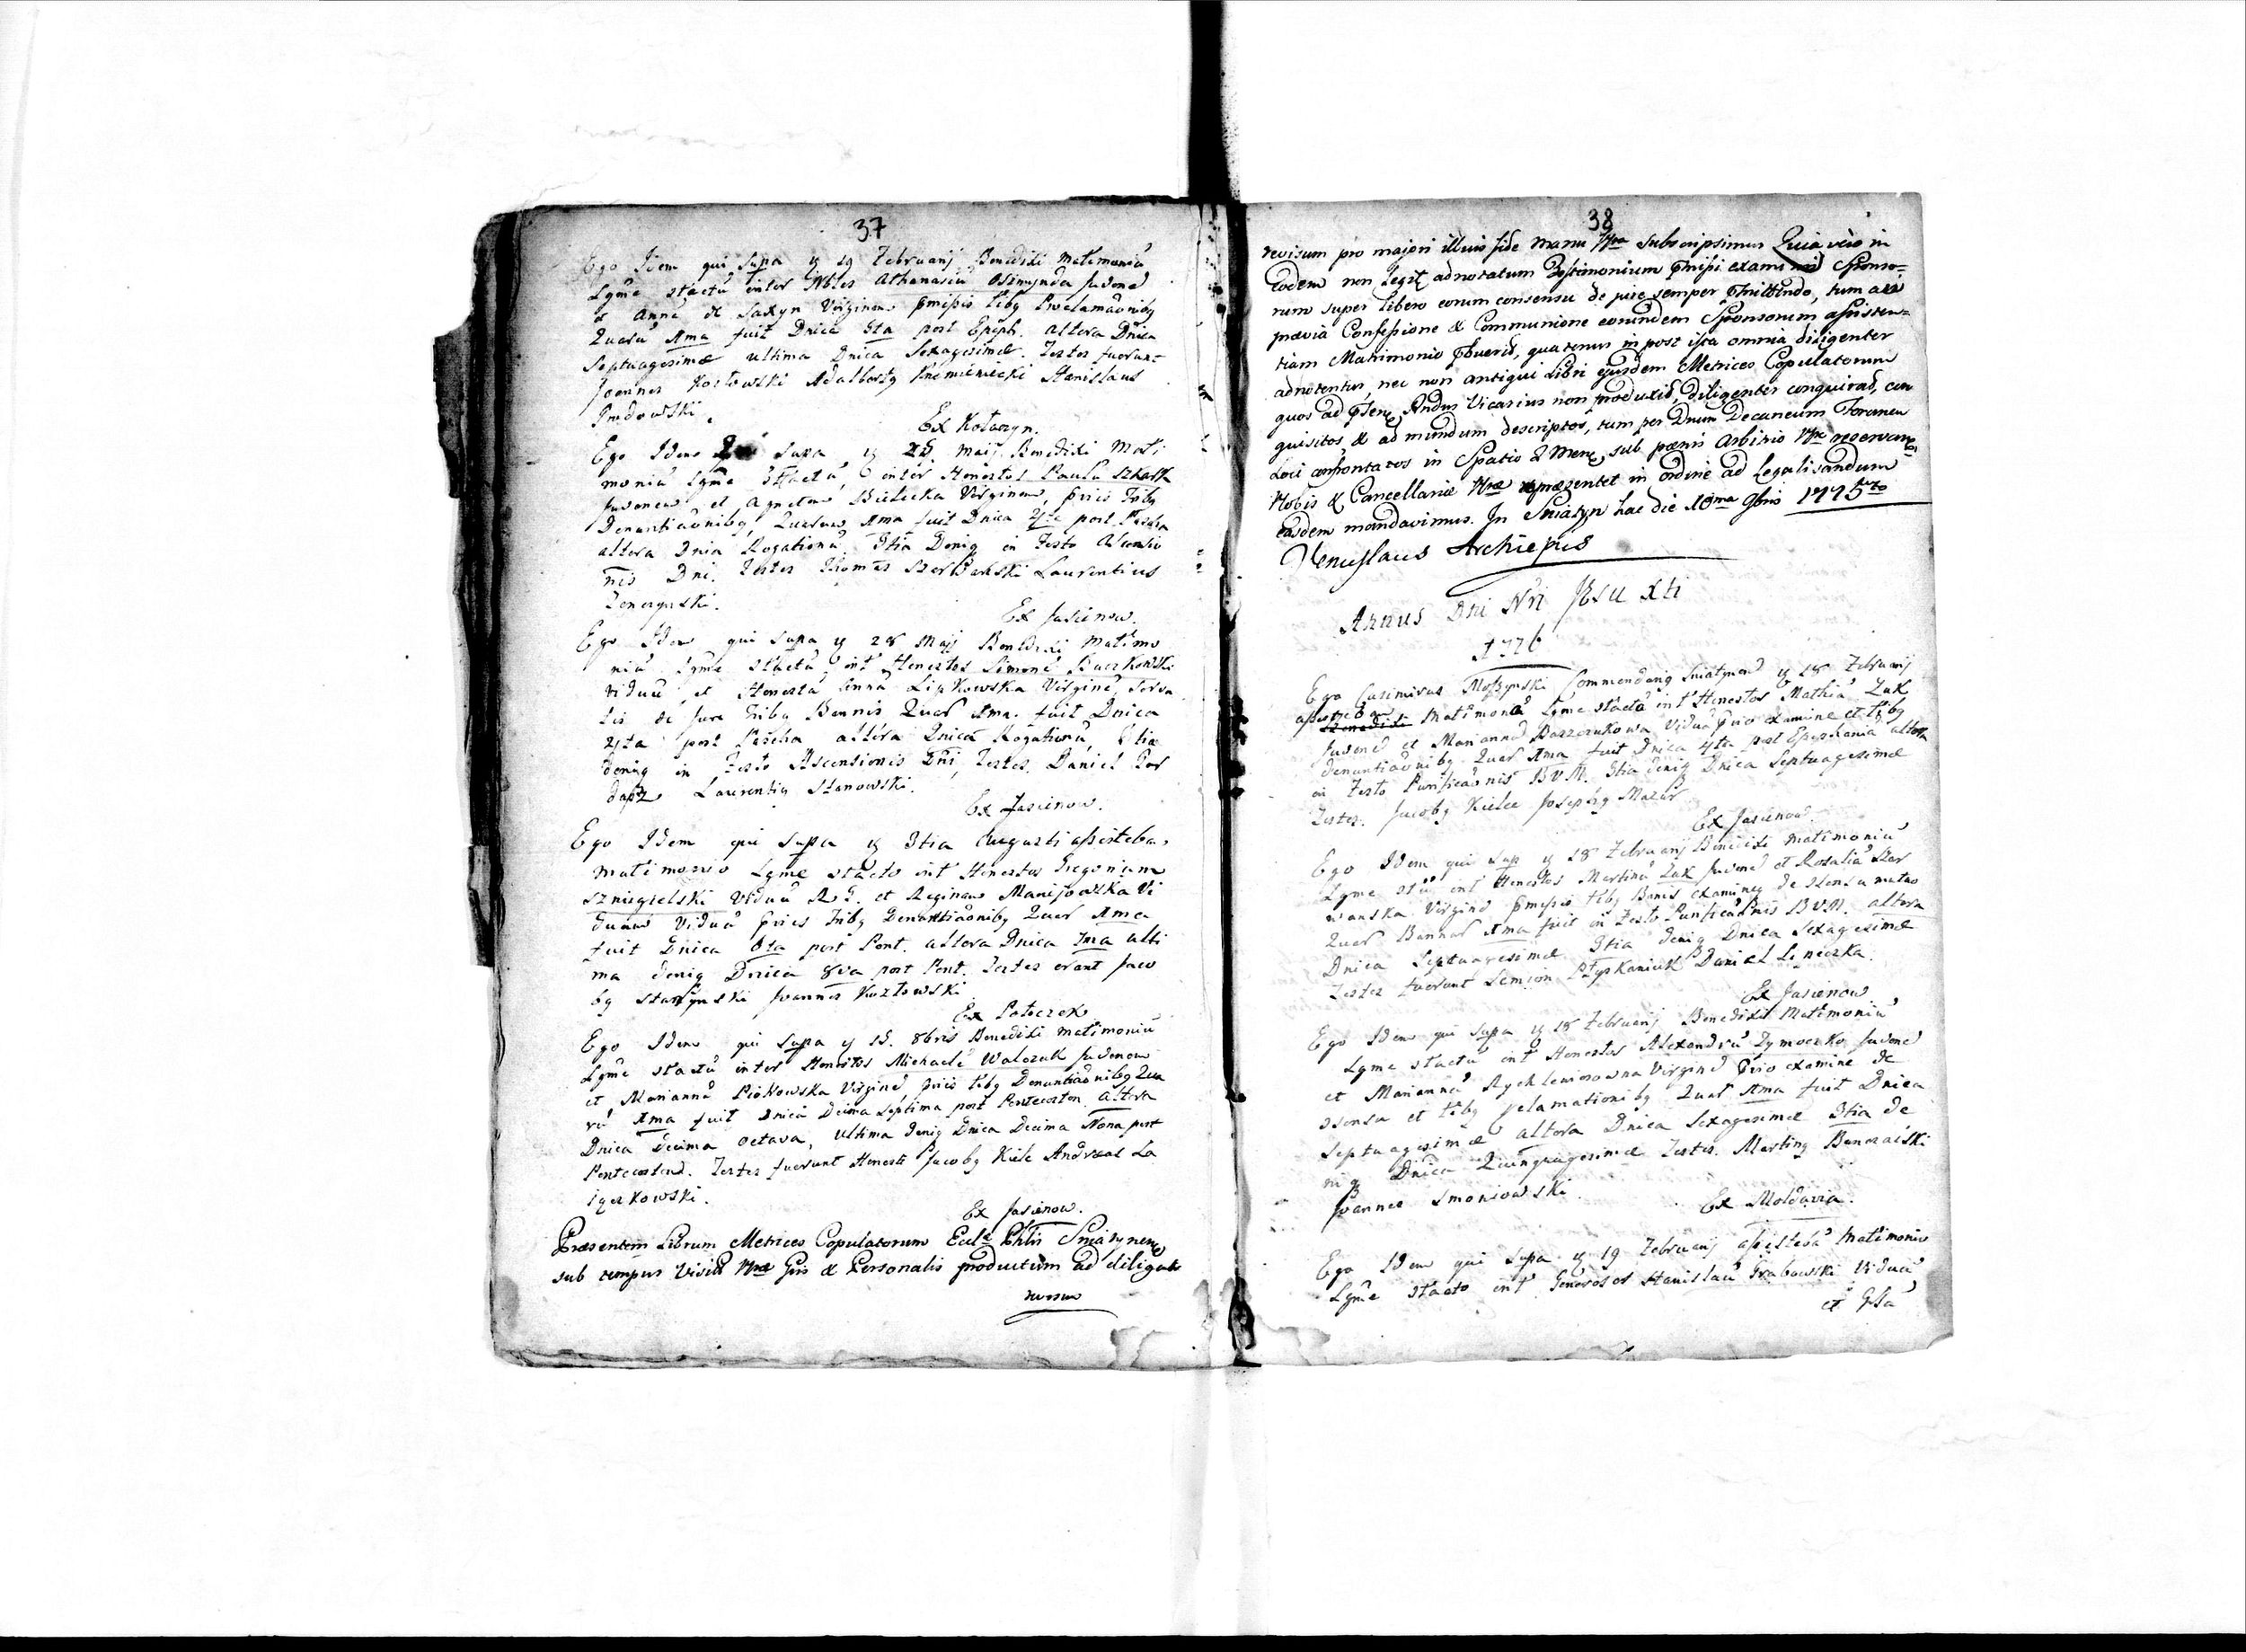 37
Ego Idem qui Supra y 19 Februarij Benedixi Matimoniũ
Lgme stactũ inter Nbles Athanasiũ Osimynda Juvenẽ
et Anna de Saxyn Virginem pmissis tribg Proclamaõnibg
Quarũ Ima fuit Dnica 3ta post Epiph. altera Dnica
Septuagesimæ ultima Dnica Sexagesimæ. Testes fuerunt
Joannes Kozłowski Adalbertg Krzemieniecki Stanislaus
Ex Kołaczyn.
Ego Idem qui Supra y 25 Maij Benedixi Mati
moniũ Lgme stactũ, inter Honestos Paulũ Szkarła
Juvenem et Agnetem Bielicka Virginem, priis Tribg
Denuntiaõnibg, Quarum Ima fuit Dnica 4ta post Pascha
altera Dnia Rogationũ 3tia Deniq in Festo Ascensio
nis Dni. Testes Thomas Szerbański Laurentius
Ex Jasienow.
Ego Idem qui Supra y 28 Maij Benedixi Matimo
niũ Lgme stactũ, int Honestos Simonẽ Baczkowski
viduũ et Honestã Annã Lipkowska Virginẽ, Serva
tis de Jure Tribg Bannis Quar Ima fuit Dnica
4ta post Pascha altera Dnica Rogationũ, 3tia
deniq in Festo Ascensionis Dni, Testes Daniel Por
dasz Laurentig Stanowski.
Ex Jasienow.
Ego Idem qui Supra y 3tia Augusti assistebam
matimonio Lgme stacto int Honestos Gregorium
Szniegielski Viduũ R. L. et Reginam Maniejowska Vi
duam Viduã priis Tribg Denuntiaõnibg Quar Ima
fuit Dnica 6ta post Pent. altera Dnica 7ma ulti
ma deniq Dnica 8va post Pent. Testes erant Jaco
bg Starzynski Joannes Kozłowski
Ex Potoczek
Ego Idem qui Supra y 15. 8bris Benedixi matimoniũ
Lgme stactũ inter Honestos Michaelẽ Walczuk Juvenem
et Mariannã Piotrowska Virginẽ priis tribg Denuntiaõnibg Qua
rũ Ima fuit Dnica Decima Septima post Pentecosten altera
Dnica Decima octava, ultima deniq Dnica Decima Nona post
Pentecostenẽ. Testes fuerunt Honesti Jacobg Kiele Andreas La
Ex Jasienow.
Præsentem Librum Metrices Copulatorum Eccl&aelig; Phlis Sniatynens
sub tempus Visita Nræ Gnis & Personalis productum ad diligente
revisum
38
revisum pro majori illius fide manu Nra subscripsimus Quia vero in
eodem non legit adnotatum Testimonium pmissi examinis Sponso=
rum super libero eorum consensu de jure semper pmittendo, tum an
prævia Confessione & Communione eorundem Sponsorum assisten=
tiam Matrimonio pbuerit, quatenus in post ista omnia diligenter
adnotentur, nec non antiqui Libri ejusdem Metrices Copulatorum
quos ad psens Rndus Vicarius non produxit, diligenter conquirat, con
quisitos, & ad mundum descriptos, tum per Dnum Decanum Foraneu
Loci confrontatos in Spatio 2 Mens, sub pœnis arbitrio Nro reservandis
Nobis & Cancellariæ Nræ repræsentet in ordine ad legalisandum
easdem mandavimus. In Sniatyn hac die 10ma 9bris 1775to
Venceslaus Archiepus
Annus Dni Nri Jesu Xti
1776
Ego Casimirus Moszynski Commendarig Sniatynen y 18 Februarij
assisteba Benedixi Matimonũ Lgme stactũ int Honestos Mathiã Zuk
Juvenẽ et Mariannã Baszczukowa Viduã prio examine et tribg
denuntiaõnibg Quar Ima fuit Dnica 4ta post Epiphania altera
in Festo Purificaõnis B.V.M. 3tia deniq Dnica Septuagesimæ
Testes. Jacobg Kielee Josephg Mazur
Ex Jasienow.
Ego Idem qui Sup y 18 Februarij Benedixi matimoniũ
Lgme stũ int Honestos Martinũ Zuk Juvenẽ et Rosaliã Szer
wanska Virginẽ pmissis tribg Banis examineq de stensu mutuo
Quar Bannar Ima fuit in Festo Purificaõnis B.V.M. altera
Dnica Septuagesimæ 3tia deniq Dnica Sexagesimæ
Testes fuerunt Semion Ptyskaniuk Daniel Leneczka
Ex Jasienow
Ego Idem qui Supa y 18 Februarij Benedixit Matimoniũ
Lgme stactũ int Honestos Alexandrũ Tymoczko Juvenẽ
et Mariannã Rychleniorowna Virginẽ prio examine de
ssensu et tribg pclamationibg Quar Ima fuit Dnica
Septuagesimæ altera Dnica Sexagesimæ 3tia de
niq Dnica Quinquagesimæ Testes. Marting Banczaiski
Joannes Smoniowski.
Ex Moldavia.
Ego Idem qui Supa y 19 Februarij assistebã Matimonio
Lgme stacto int Generosos Stanislaũ Grabowski Viduũ
et Gsã